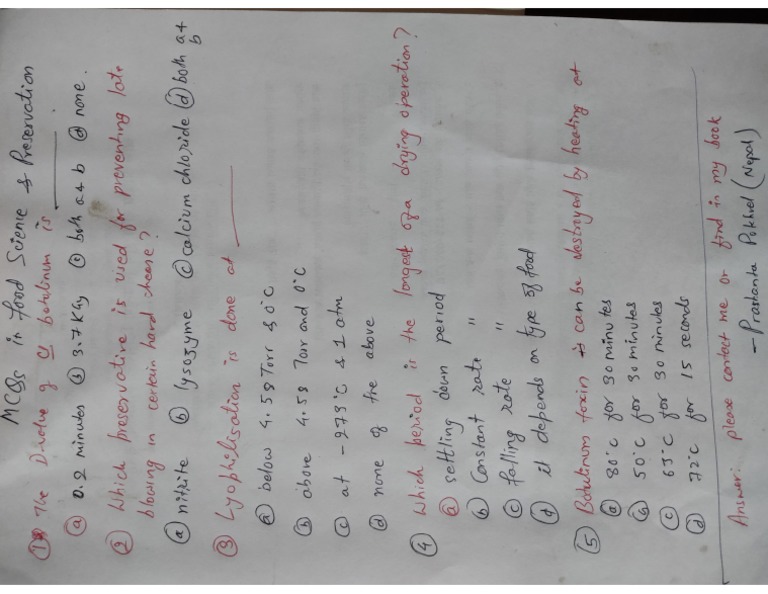 MCQs in food Science & Preservation
① The D-value of Cl botulinum is ______
ⓐ 0.2 minutes ⓑ 3.7 KGy ⓒ both a & b ⓓ none.
② Which preservative is used for preventing late
blowing in certain hard cheese?
ⓐ nitrite ⓑ lysozyme ⓒ calcium chloride ⓓ both a &
b
③ Lyophilisation is done at ______
ⓐ below 4.58 Torr & 0°C
ⓑ above 4.58 Torr and 0°C
ⓒ at -273°C & 1 atm
ⓓ none of the above
④ Which period is the longest of a drying operation?
ⓐ settling down period
ⓑ Constant rate "
ⓒ falling rate "
ⓓ it depends on type of food
⑤ Botulinum toxin can be destroyed by heating at
ⓐ 80°C for 30 minutes
ⓑ 50°C for 30 minutes
ⓒ 63°C for 30 minutes
ⓓ 72°C for 15 seconds
Answer: please contact me or find in my book
- Prastanta Pokhrel (Nepal)